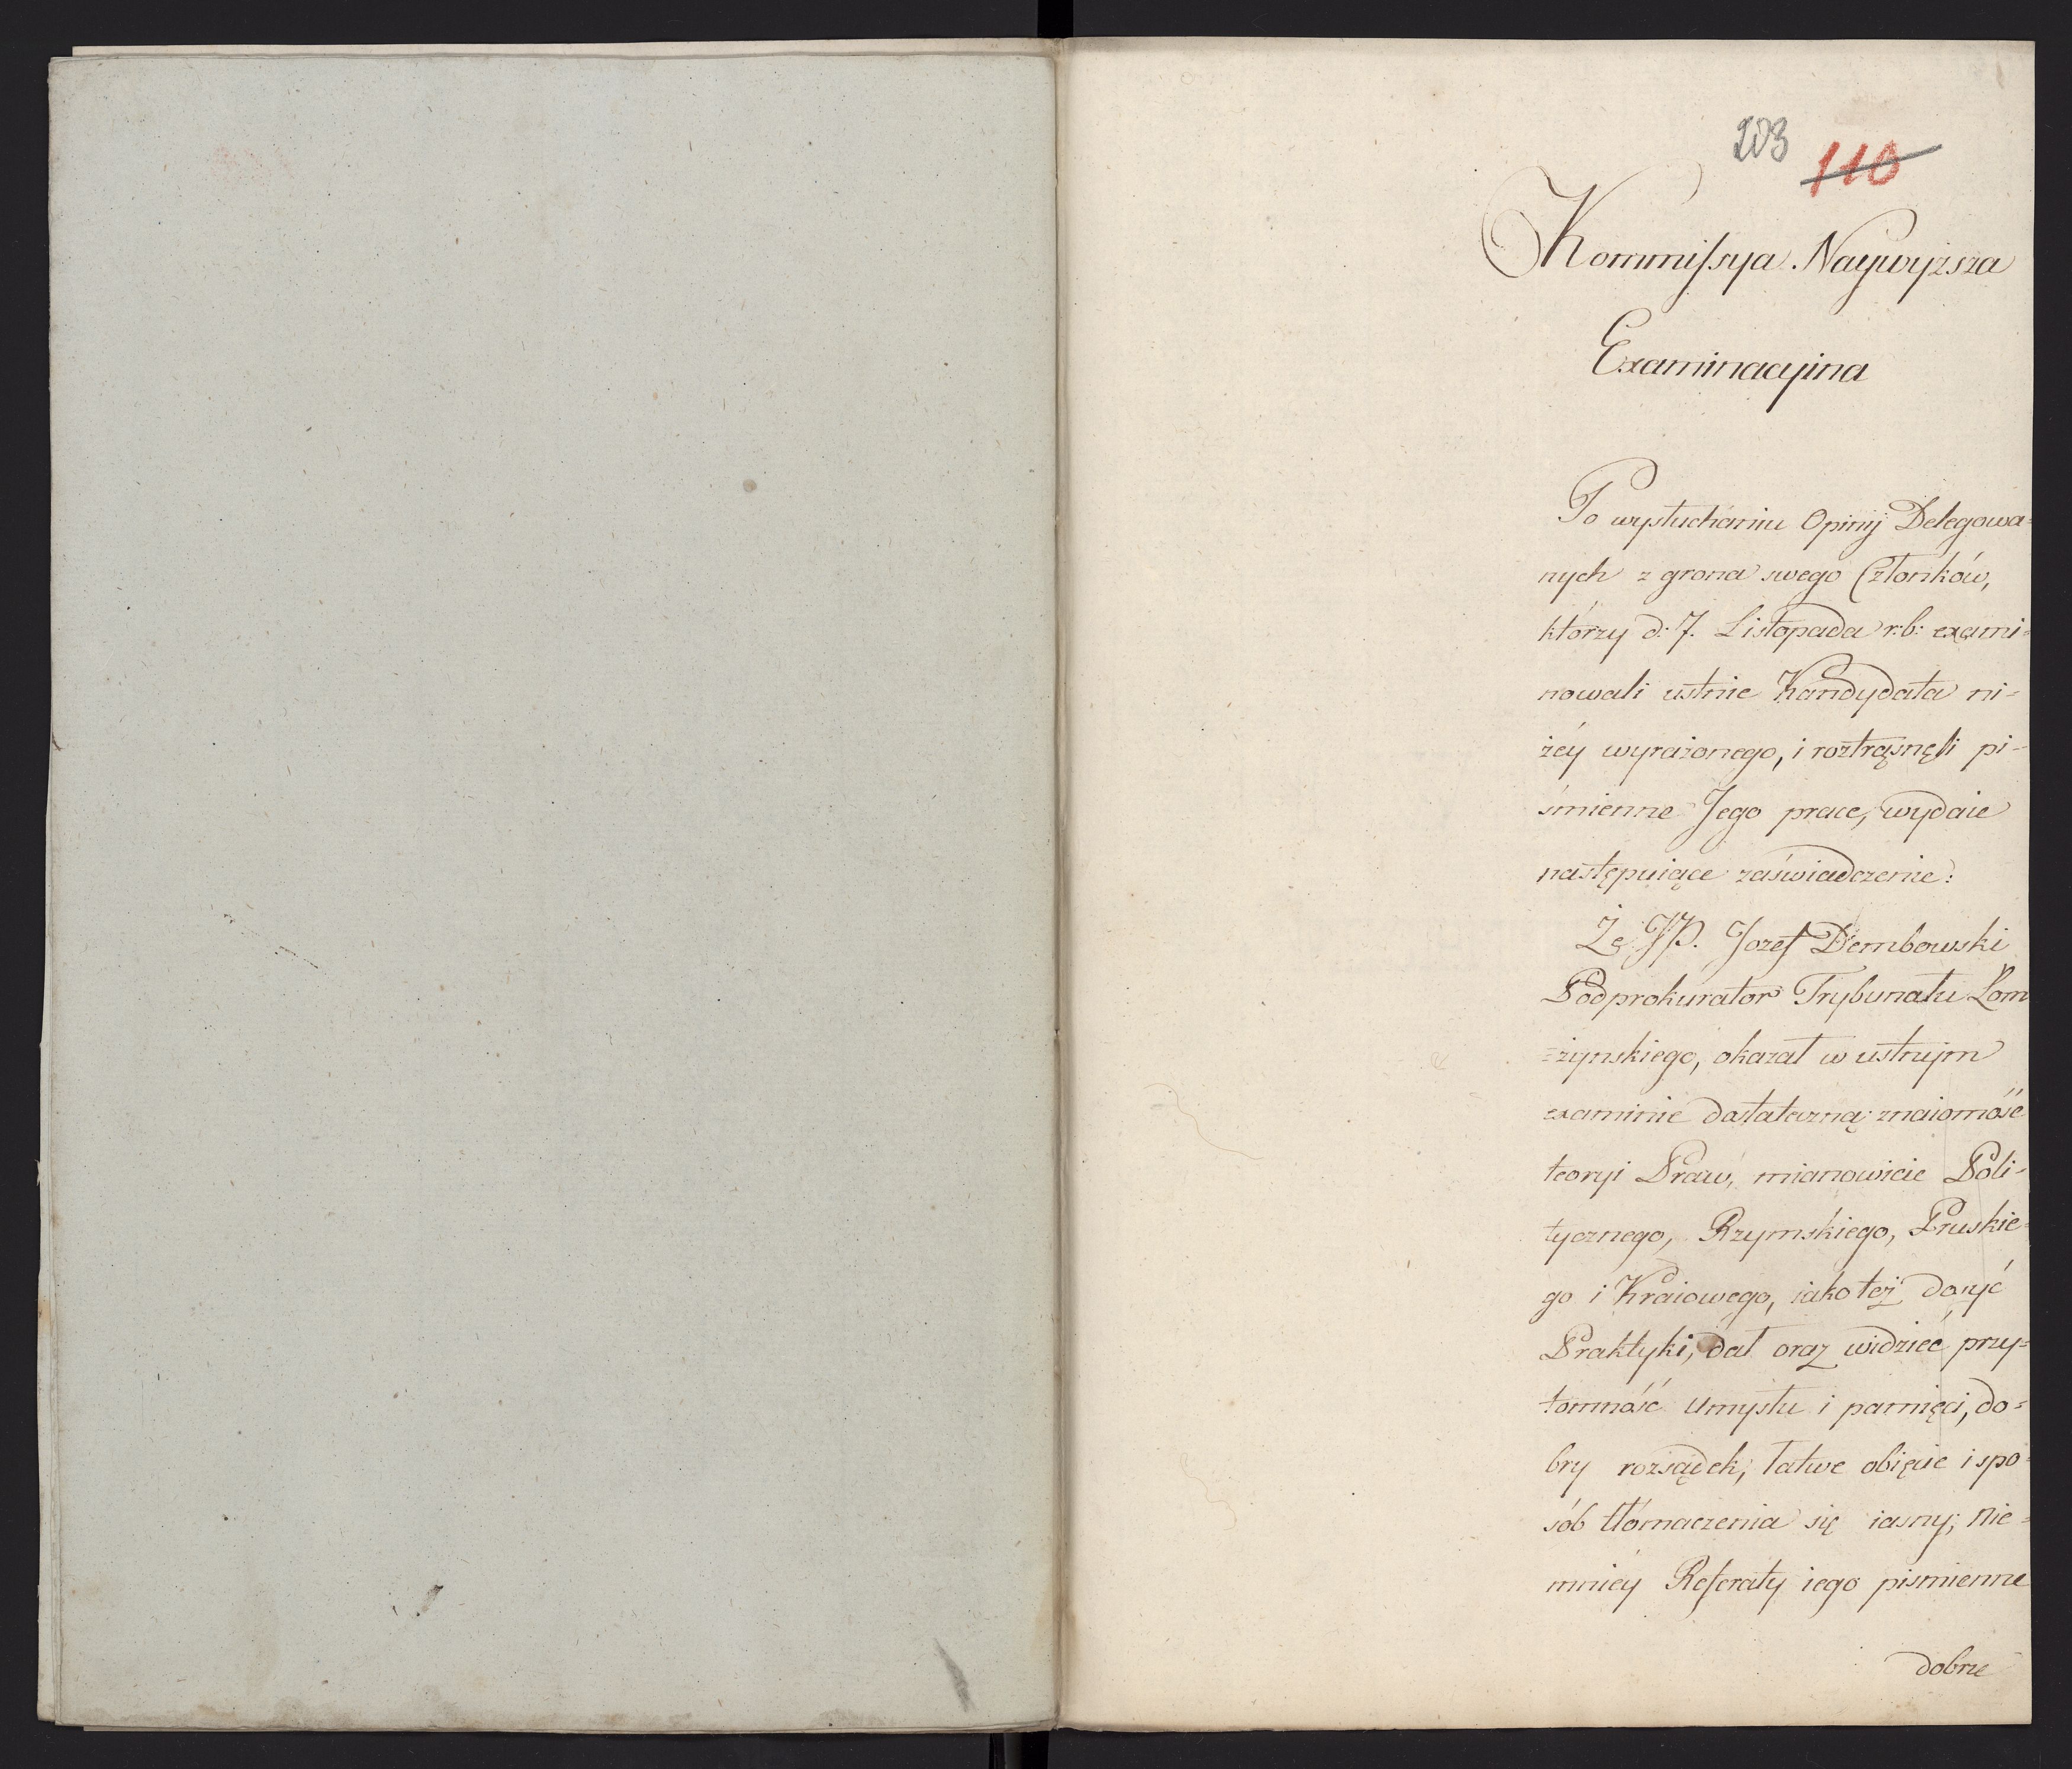 203 110
Kommissya Naywyższa
Examinacyina
Po wysłuchaniu Opinij Delegowa=
nych z grona swego Członków,
którzy d: 7. Listopada r: b: exami=
nowali ustnie Kandydata ni-
żéy wyrażonego, i roztrąsnęli pi-
śmienne Jego prace, wydaie
następuiące zaświadczenie:
Że JP. Jozef Dembowski
Podprokurator Trybunału Łom
=żynskiego, okazał w ustnym
examinie dostateczną znaiomość
teoryi Praw, mianowicie Poli-
tycznego, Rzymskiego, Pruskie=
go i Kraiowego, iako też dosyć
Praktyki, dał oraz widzieć przy=
tomność umysłu i pamięci, do=
bry rozsądek, łatwe obięcie i spo=
sób tłómaczenia się iasny; nie=
mniéy Referaty iego pismienne
dobrze